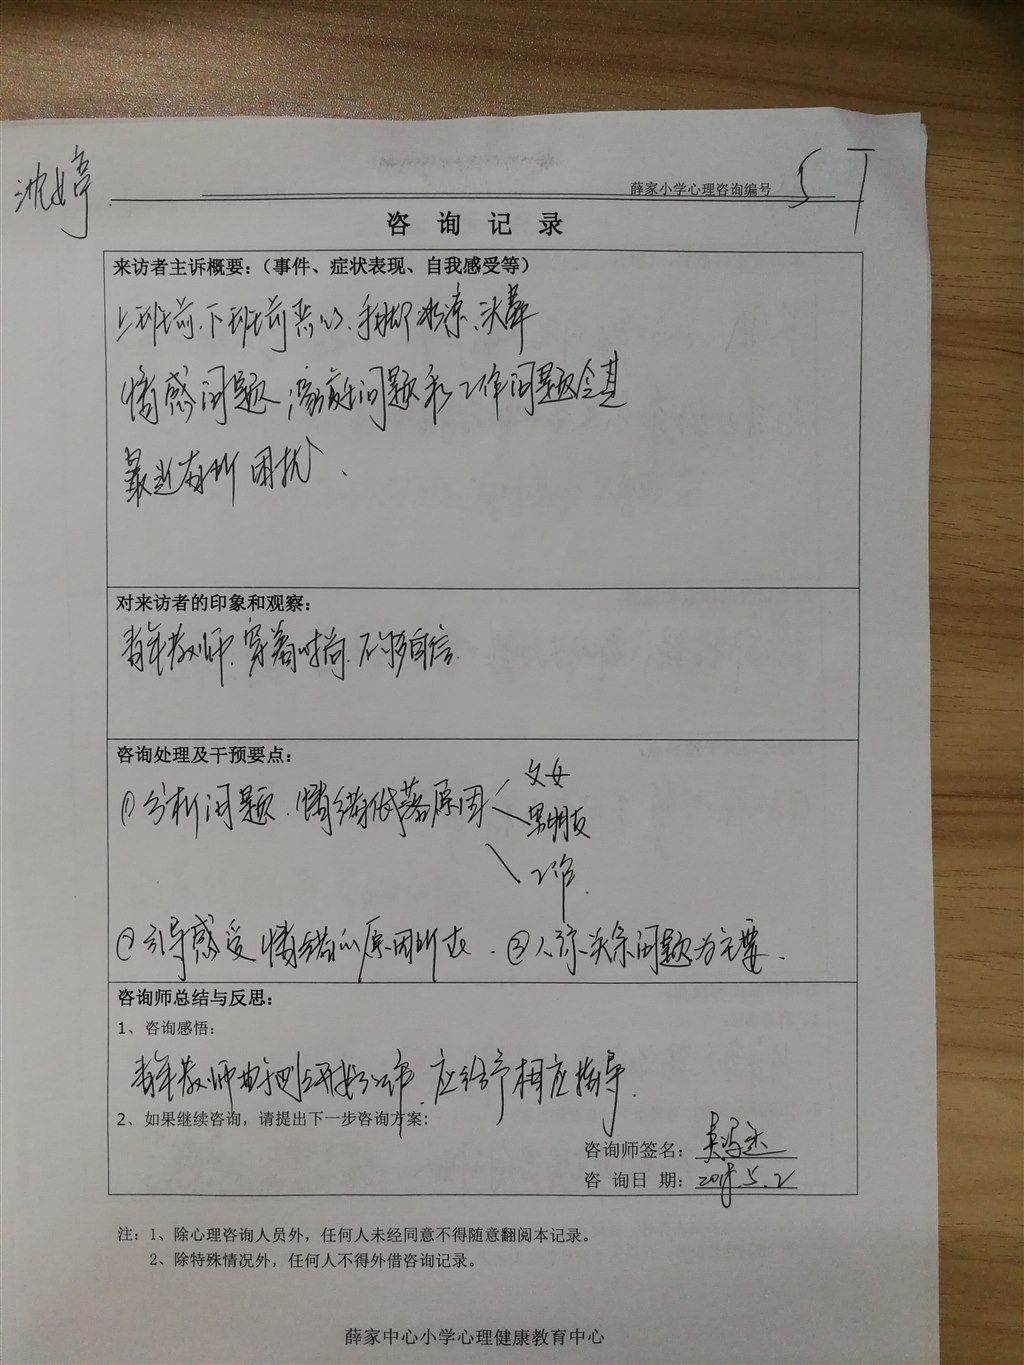 沈婷
薛家小学心理咨询编号 ST
咨 询 记 录
来访者主诉概要：（事件、症状表现、自我感受等）
上班前、下班前恶心、手脚冰凉、头晕
情感问题、家庭问题和工作问题令其
最近有所困扰、
对来访者的印象和观察：
青年教师、穿着时尚、不够自信.
咨询处理及干预要点：
① 分析问题、情绪低落原因
父女
男朋友
工作.
② 引导感受情绪的原因所在. ③ 人际关系问题为主要.
咨询师总结与反思：
1、咨询感悟：
青年教师 应给予相应指导.
2、如果继续咨询，请提出下一步咨询方案：
咨询师签名：
咨 询日 期：2018.5.2
注：1、除心理咨询人员外，任何人未经同意不得随意翻阅本记录。
2、除特殊情况外，任何人不得外借咨询记录。
薛家中心小学心理健康教育中心